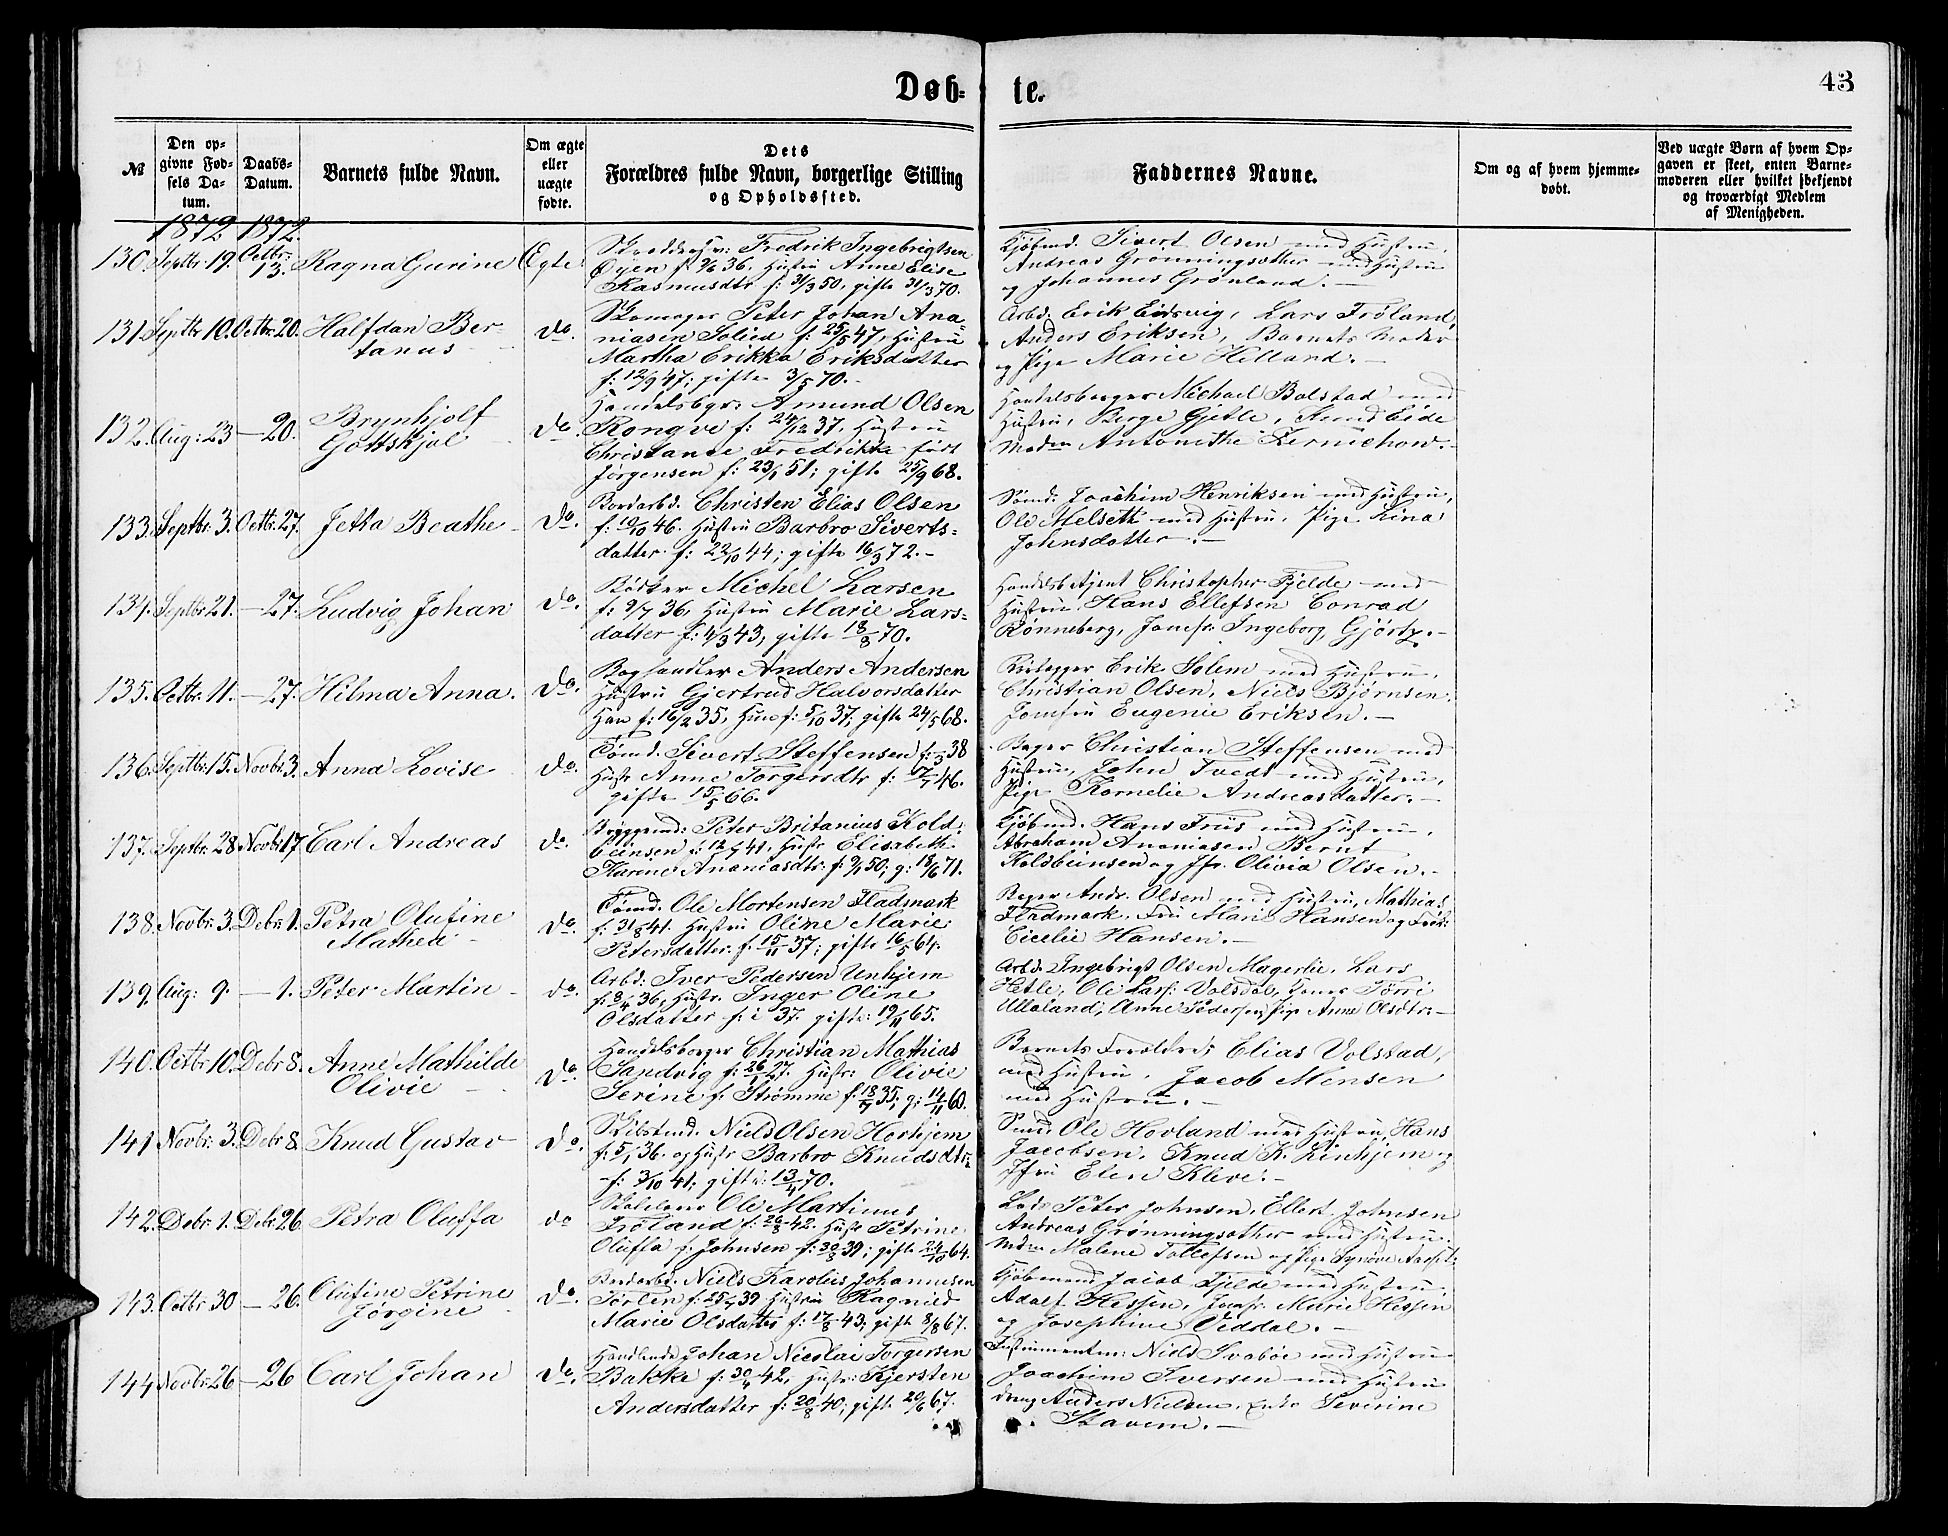 Døb-
te.
43
№
Den op-
givne Fød-
sels Da-
tum.
Daabs-
Datum.
Barnets fulde Navn.
Om ægte
eller
uægte
fødte.
Dets
Forældres fulde Navn, borgerlige Stilling
og Opholdssted.
Faddernes Navne.
Om og af hvem hjemme-
døbt.
Ved uægte Børn af hvem Op-
gaven er skeet, enten Barne-
moderen eller hvilket bekjendt
og troværdigt Medlem
af Menigheden.
1872 1872.
130. Septbr. 19. Octbr. 13. Ragna Gurine Ægte
Fredrik Ingebrigtsen
Øyen f. 36. Hustru Anne Elise
Rasmusdtr f: 31/3 50, gifte 31/3 70.
Kjøbmd. Sivert Olsen med Hustru,
Andreas Grønningsæther med Hustru
og Johannes Grønland. –
131. Septbr 10. Octbr. 20. Halfdan Ber-
tanus do.
Skomager Peter Johan Ana-
niasen Solied f: 25/5 47, Hustru
Martha Erikka Eriksdatter
f: 12/9 47; gifte 3/5 70. –
Arbd. Erik Eidsvig, Lars Frøland,
Anders Eriksen, Barnets Moder
og Pige Marie Helland. –
132. Aug: 23 – 20. Brynhjolf
Gottskjal do.
Handelsbgr: Amund Olsen
Rongve f: 24/12 37. Hustru
Christanse Fredrikke født
Jørgensen f: 23/1 51; gifte 25/9 68.
Handelsborger Michael Bolstad med
Hustru, Berge Gjetle, Amund Eide
Madm Antonethe
133. Septbr. 3. Octbr. 27. Jetta Beathe do.
Bordarbd. Christen Elias Olsen
f: 19/10 46. Hustru Barbro Siverts-
datter f: 22/10 44; gifte 16/3 72. –
Tømd. Joachim Henriksen med Hustru,
Ole Melseth med Hustru, Pige Lina
Johnsdatter. –
134. Septbr. 21. – 27. Ludvig Johan do.
Bødker Michel Larsen
f: 9/7 36, Hustru Marie Lars-
datter f: 4/3 43, gifte 18/8 70.
Handels Agent Christopher Fjelde med
Hustru, Hans Ellefsen Conrad
Rønneberg, Jomfr. Ingeborg Gjørtz. –
135. Octbr. 11. – 27. Hilma Anna. do.
Boghandler Anders Andersen
Hustru Gjertrud Halvorsdatter
Han f: 16/2 35, Hun f: 5/10 37; gifte 24/5 68.
Erik Solem med Hustru,
Christian Olsen, Niels Bjørnsen
Jomfru Eugenie Eriksen. –
136. Septbr. 15. Novbr. 3. Anna Lovise do.
Tømd. Sivert Steffensen f: 38
Hustr Anne Torgersdtr f: 46.
gifte 15/5 66.
Bager Christian Steffensen med
Hustru, John Tvedt med Hustru,
Pige Kornelie Andreasdatter. –
137. Septbr. 28. Novbr 17. Carl Andreas do.
Byggemd: Peter Britanius Kold-
beinsen f: 12/7 41, Hustr Elisabeth
Karine Ananiasdtr. f: 9/1 50; g: 18/6 71.
Kjøbmd. Hans Friis med Hustru,
Abraham Ananiasen Bernt
Koldbeinsen og Jfr. Olivia Olsen. –
138. Novbr. 3. Debr. 1. Petra Olufine
Mathea do.
Tømd. Ole Mortensen Fladmark
f: 31/8 41. Hustru Oline Marie
Petersdatter f: 15/11 37; gifte 16/5 64.
Bager Andr. Olsen med Hustru, Mathias
Fladmark, Fru Marie Hansen og Frøk:
Cicelie Hansen. –
139. Aug: 9. – 1. Peter Martin do.
Arbd: Iver Pedersen Unhjem
f: 8/4 36, Hustr. Inger Oline
Olsdatter f: i 37. gifte: 19/11 65.
Arbd. Ingebrigt Olsen Magerlie, Lars
Hetle, Ole Lars: Volsdal, Koner Torri
Ullaland, Anne Pedersen, Pige Anne Olsdtr. –
140. Octbr 10. Debr 8. Anne Mathilde
Olivie do.
Handelsborger Christian Mathias
Sandvig f: 26/1 27. Hustr: Olivie
Serine f. Strømme f: 18/7 35; g: 14/11 60.
Barnets Forældre; Elias Volstad,
med Hustru, Jacob Monsen
med Hustru. –
141 Novbr. 3. Debr 8. Knud Gustav do.
Skibstmd. Niels Olsen Horhjem
f: 5/1 36. og Hustr Barbro Knudsdtr.
f: 3/10 41; gifte: 13/4 70.
Smed Ole Hovland med Hustru, Hans
Jacobsen, Knud K. Linhjem og
Jfru Elen Kleve. –
142. Debr. 1. Debr. 26. Petra Oluffa do
Ole Martinus
Frøland f: 26/8 42. Hustr Petrine
Oluffa f. Johnsen f: 30/8 39; gifte 24/10 64.
Lods Peter Johnsen, Ellert Johnsen
Andreas Grønningsæther med Hustru.
Mdm Malene Tollefsen og Pige Synøve
143. Octbr 30 – 26. Olufine Petrine
Jørgine do.
Bordarbd. Niels Karolius Johannesen
Tørlen f: 25/7 39 Hustru Ragnild
Marie Olsdatter f: 17/8 43; gift 8/8 67.
Kjøbmand Jacob Fjelde med Hustru,
Adolf Hessen, Jomfr Marie Hessen
og Josephine Viddal. –
144 Novbr: 26 – 26 Carl Johan do.
Handlende Johan Nicolai Torgersen
Bakke f: 30/4 42, Hustr: Kjersten
Andersdatter f: 20/8 40; gifte 20/6 67.
Niels Svaboe med Hustru
Joachim Iversen med Hustru
Dreng Anders Nielsen, Enke Severine
Stavem. –